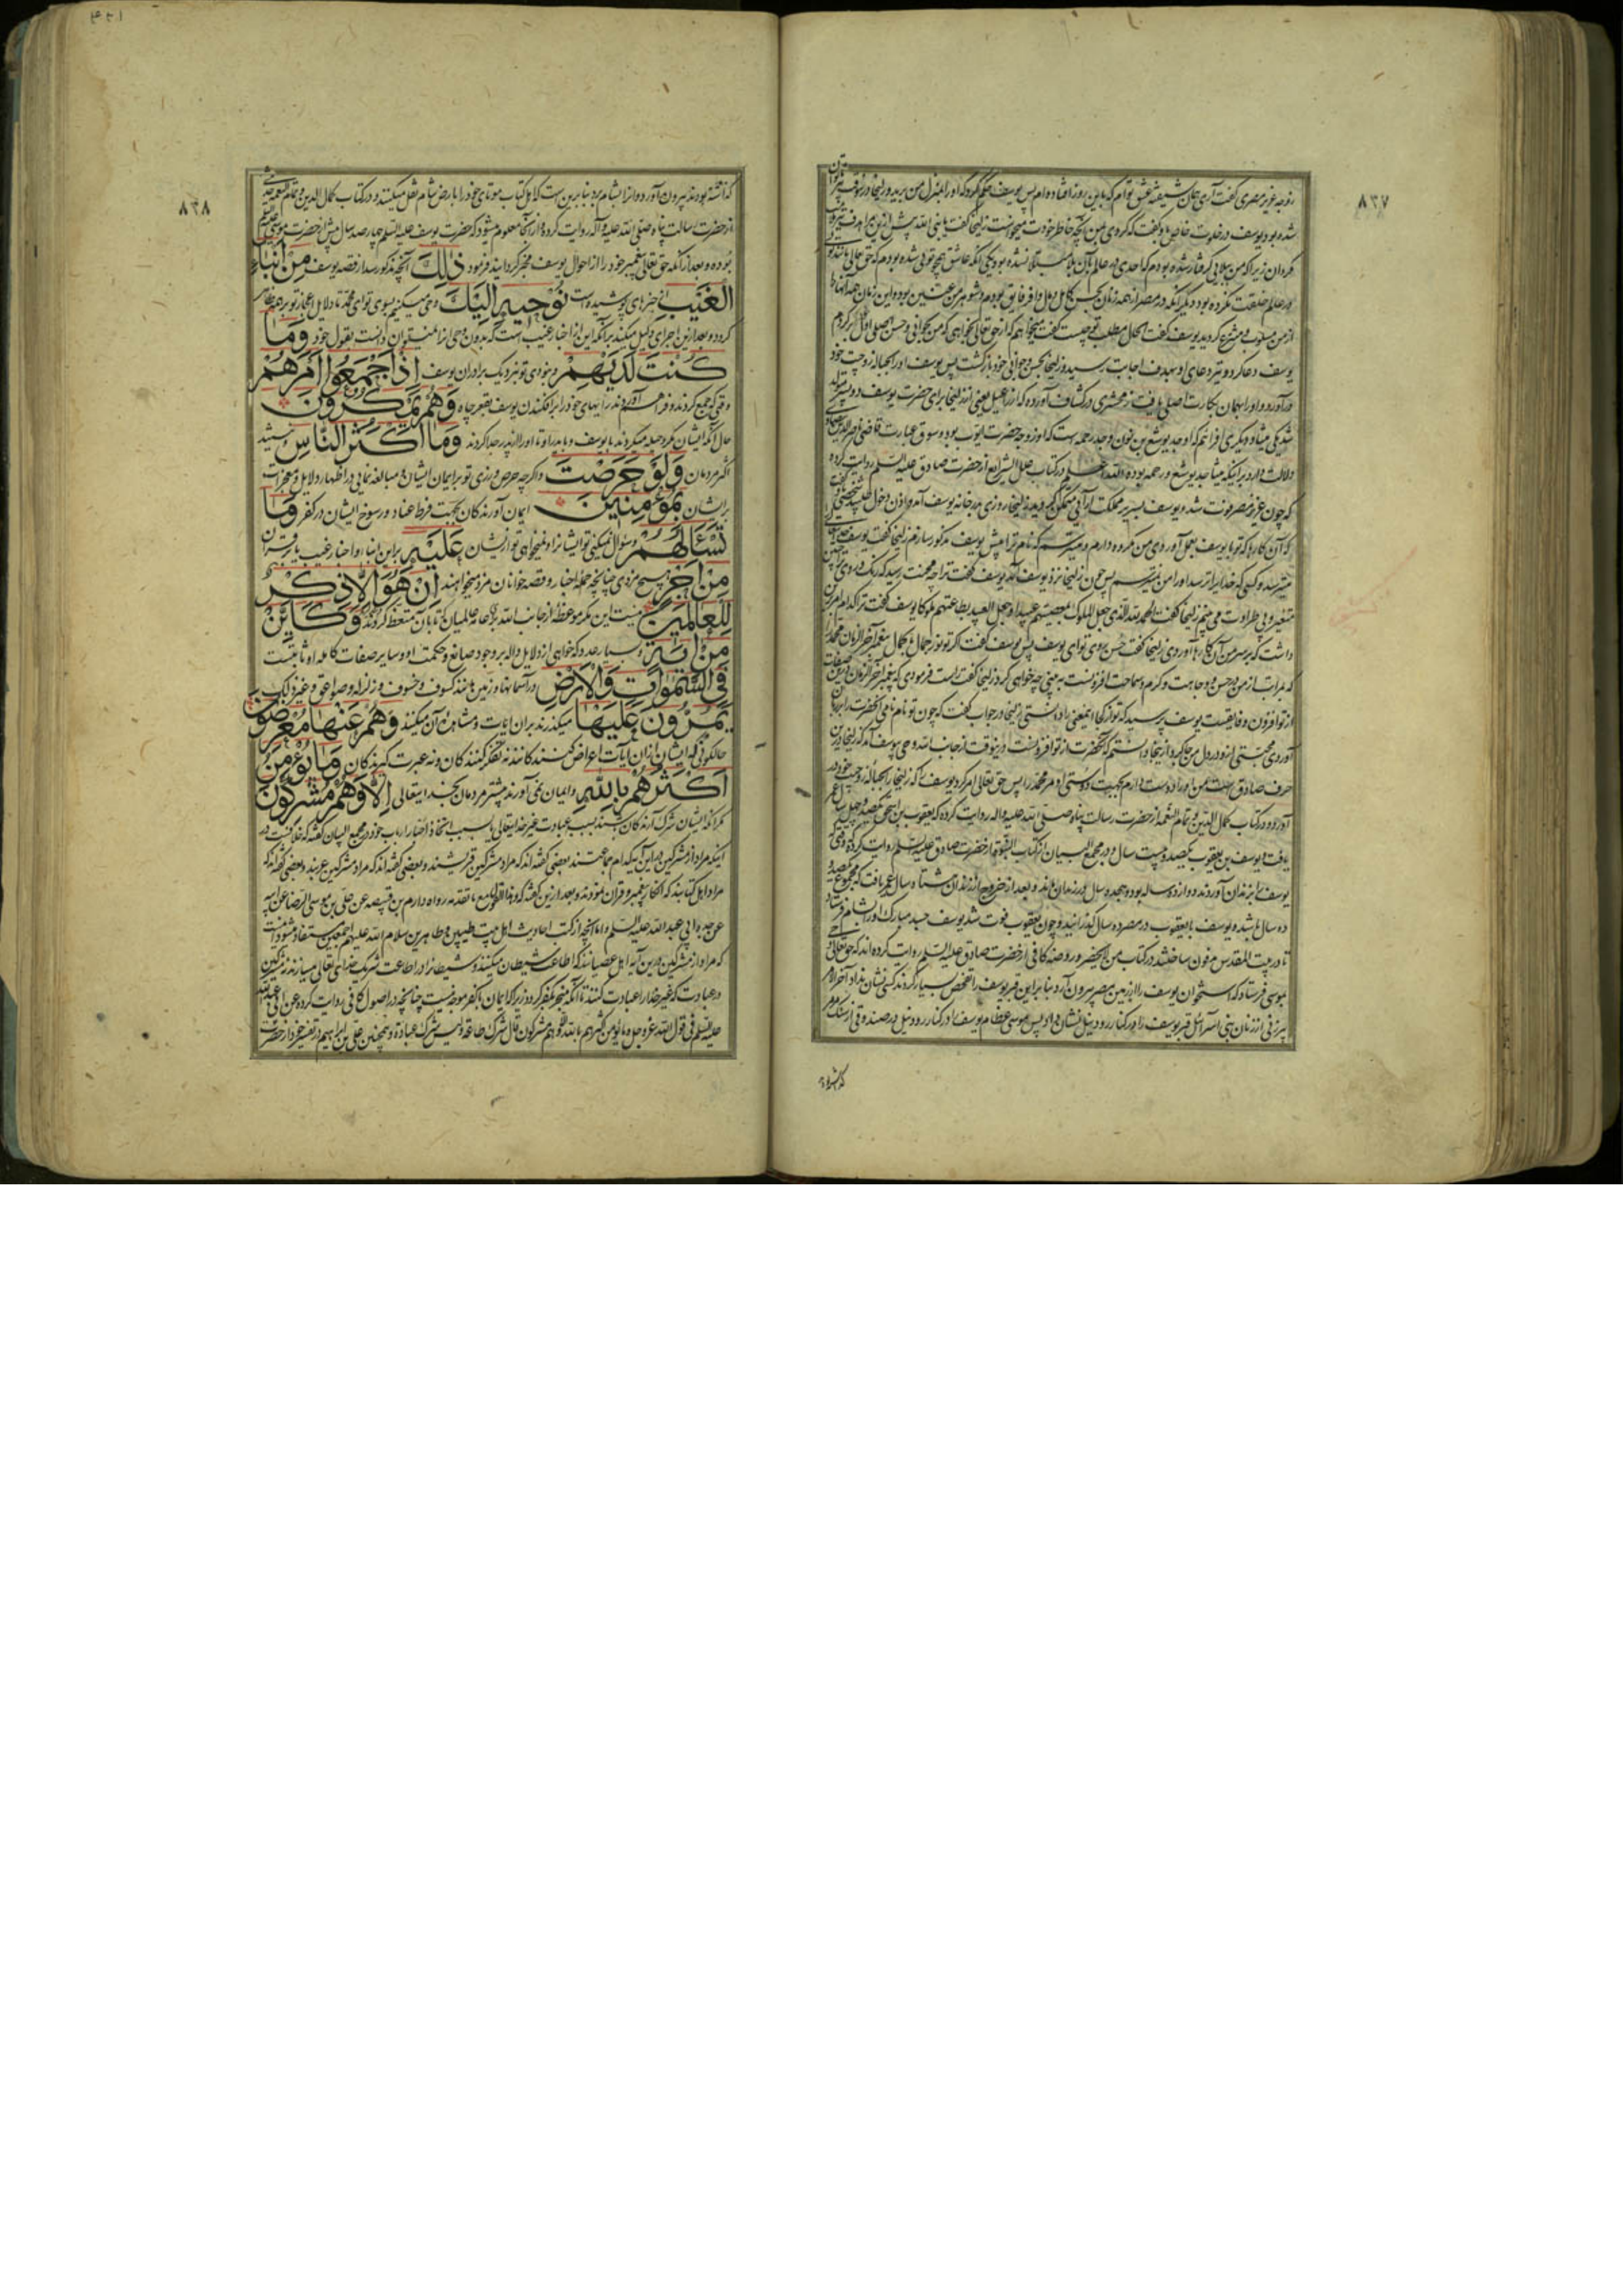 ٨٣٧
زوجه عزیز مصری گفت آری همان شیفته عشق توام که باین روز افتاده‌ام پس یوسف حکم کرد که او را بمنزل من برید و زلیخا در
شده بود یوسف در خلوت خاص با او گفت که
گردان زیرا که من ببلایی گرفتار شده بودم که احدی در عالم بآن بلا مبتلا نشده بود یکی آنکه عاشق همچو تویی شده بودم که حق تعالی مانند تو
در عالم خلقت نکرده بود دیگر آنکه در مصر از همه زنان بحسن کامل و مال وافر فایق بودم و شوهر من عنین بود و این زمان همه آنها
از من مسلوب و منتزع گردید یوسف گفت الحال مطلب تو چیست گفت میخواهم که از حق تعالی بخواهی که من بجوانی و حسن اصلی اول برگردم
یوسف دعا کرد و تیر دعای او بهدف اجابت رسید و زلیخا بحسن و جوانی خود بازگشت پس یوسف او را بحباله زوجیت خود
درآورد و او را بهمان بکارت اصلی یافت زمخشری در کشاف آورده که از راعیل یعنی از زلیخا برای حضرت یوسف دو پسر متولد
شد یکی میشا و دیگری افرائیم که او جد یوشع بن نون و جد رحمه است که او زوجه حضرت ایوب بود و سوق عبارت قاضی ناصرالدین بیضاوی
دلالت دارد بر اینکه میشا جد یوشع و رحمه بوده والله اعلم در کتاب علل الشرایع از حضرت صادق علیه السلم روایت کرده
که چون عزیز مصر فوت شد و یوسف بسریر مملکت آرایی متمکن گردید زلیخا روزی بدر خانه یوسف آمد و اذن دخول طلبید
که آن کارها که تو با یوسف بعمل آوردی من مکروه دارم و میترسم که نام ترا پیش یوسف مذکور سازم زلیخا گفت یوسف
میترسد و کسی که خدا را ترسد او را من نمیترسم پس چون زلیخا نزد یوسف آمد یوسف گفت ترا چه محنت رسید که رنگ و روی
متغیر و بی طراوت می بینم زلیخا گفت الحمد لله الذی جعل الملوک بمعصیتهم عبیدا و جعل العبید بطاعتهم ملوکا یوسف گفت ترا کدام امر برین
داشت که بر سر من آن کارها آوردی زلیخا گفت حسن روی تو ای یوسف پس یوسف گفت که تو نور جمال با کمال پیغمبر آخر الزمان محمد
که بمراتب از من در حسن و وجاهت و کرم و سماحت افزونست به بینی چه خواهی کرد زلیخا گفت راست فرمودی که پیغمبر آخر الزمان درین صفات
از تو افزون و فایقست یوسف پرسید که تو از کجا اینمعنی را دانستی زلیخا در جواب گفت که چون تو نام نامی آنحضرت را بر زبان
آوردی محبتی از او در دل من جا گیر شد از اینجا دانستم که آنحضرت از تو افزونست درینوقت از جانب الله وحی بیوسف آمد که زلیخا درین
حرف صادق است و من او را دوست دارم بجهت دوستی او مر محمد را پس حق تعالی امر کرد یوسف را که زلیخا را بحباله زوجیت خود در
آورد و در کتاب کمال الدین و تمام النعمه از حضرت رسالت پناه صلی الله علیه و اله روایت کرده که یعقوب بن اسحق یکصد و چهل سال عمر
یافت و یوسف بن یعقوب یکصد و بیست سال و در مجمع البیان از کتاب النبوة از حضرت صادق علیه السلم روایت کرده که وقتی
یوسف را بزندان آوردند دوازده ساله بود و هجده سال در زندان ماند و بعد از خروج از زندان هشتاد سال عمر یافت که مجموع یکصد و
ده سال باشد و یوسف با یعقوب در مصر دو سال گذرانید و چون یعقوب فوت شد یوسف جسد مبارک او را بشام فرستاد
تا در بیت المقدس مدفون ساختند و در کتاب من لایحضر و روضه کافی از حضرت صادق علیه السلم روایت کرده‌اند که حق تعالی وحی
بموسی فرستاد که استخوان یوسف را از زمین مصر بیرون آرد بنا بر این قبر یوسف را تفحص بسیار کردند کسی نشان نداد آخر الامر
پیرزنی از زنان بنی اسرائیل قبر یوسف را در کنار رود نیل نشان داد پس موسی عظام یوسف را در کنار رود نیل در صندوقی از سنگ مرمر
گذاشته بود
٨٣٨
گذاشته بودند بیرون آورد و او را بشام برد بنابرین است که اهل کتاب موتای خود را بارض شام نقل میکنند و در کتاب کمال الدین و تمام النعمه
از حضرت رسالت پناه صلی الله علیه و آله روایت کرده و از آنجا معلوم میشود که حضرت یوسف علیه السلم چهارصد سال پیش از حضرت موسی
بوده و بعد از آنکه حق تعالی پیغمبر خود را از احوال یوسف مخبر گردانید فرمود ذٰلِكَ آنچه مذکور شد از قصه یوسف مِنْ اَنْبَآءِ
الْغَيْبِ از خبرهای پوشیده است نُوْحِيهِ اِلَيْكَ وحی میکنیم بسوی تو ای محمد تا دلایل اعجاز تو بر همه ظاهر
گردد و بعد ازین اجرای دلیل میکند بر آنکه این از اخبار غیب است که بدون وحی او را نمیتوان دانست بقول خود وَمَا
كُنْتَ لَدَيْهِمْ و نبودی تو نزدیک برادران یوسف اِذْ اَجْمَعُوا اَمْرَهُمْ
وقتی که جمع کردند و فراهم آوردند رایهای خود را برافکندن یوسف بقعر چاه وَهُمْ يَمْكُرُونَ
حال آنکه ایشان مکر و حیله میکردند با یوسف و با پدر او تا او را از پدر جدا کردند وَمَا اَكْثَرُ النَّاسِ و نیستند
اکثر مردمان وَلَوْ حَرَصْتَ و اگر چه حرص ورزی تو بر ایمان ایشان و مبالغه نمایی در اظهار دلایل و معجزات
بر ایشان بِمُؤْمِنِينَ ایمان آورندکان بجهت فرط عناد و رسوخ ایشان در کفر وَمَا
تَسْئَلُهُمْ و سئوال نمیکنی تو ایشانرا و نمیخواهی تو از ایشان عَلَيْهِ بر این انباء و اخبار غیب یا بر قرآن
مِنْ اَجْرٍ هیچ مزدی چنانچه حمله اخبار و قصه خوانان مزد میخواهند اِنْ هُوَ اِلَّا ذِكْرٌ
لِلْعَالَمِينَ نیست این مگر موعظه از جانب الله برای عامه عالمیان تا بآن متعظ گردند وَكَاَيِّنْ
مِنْ اٰيَةٍ و بسیار عدد که خواهی از دلایل داله بر وجود صانع و حکمت او و سایر صفات کامله او ثابتست
فِى السَّمٰوَاتِ وَالْاَرْضِ در آسمانها و زمین مانند کسوف و خسوف و زلزله و صواعق و غیر ذلک
يَمُرُّونَ عَلَيْهَا میگذرند بر آن آیات و مشاهده آن میکنند وَهُمْ عَنْهَا مُعْرِضُونَ
حالکونی که ایشان از آن آیات اعراض کنندکانند نه تفکر کنندکان و نه عبرت گیرندکان وَمَا يُؤْمِنُ
اَكْثَرُهُمْ بِاللّٰهِ و ایمان نمی آورند بیشتر مردمان بخدایتعالی اِلَّا وَهُمْ مُشْرِكُونَ
مگر آنکه ایشان شرک آرندکان باشند بسبب عبادت غیر خدایتعالی یا بسبب اتخاذ احبار ارباب خود در مجمع البیان گفته که خلافست در
اینکه مراد از مشرکین درین آیه کدام جماعتند بعضی گفته‌اند که مراد مشرکین قریشند و بعضی گفته‌اند که مراد مشرکین عربند و بعضی گفته‌اند که
مراد اهل کتابند که انکار پیغمبر و قرآن نمودند و بعد ازین گفته که
عن جده ابی عبد الله علیه السلم و اما آنچه از کتب احادیث اهل بیت طیبین و طاهرین سلام الله علیهم اجمعین مستفاد میشود آنست
که مراد از مشرکین درین آیه اهل عصیانند که اطاعت شیطان میکنند و شیطانرا در اطاعت شریک خدای تعالی میسازند نه مشرکین
در عبادت که غیر خدا را عبادت کنند تا آنکه منجر بکفر گردد زیرا که ایمان با کفر موجود نیست چنانچه در اصول کافی روایت کرده عن ابی عبدالله
علیه السلم فی قول الله عز و جل و ما یؤمن اکثرهم بالله الا و هم مشرکون قال شرک طاعة و لیس شرک عبادة و همچنین علی بن ابراهیم در تفسیر خود از حضرت